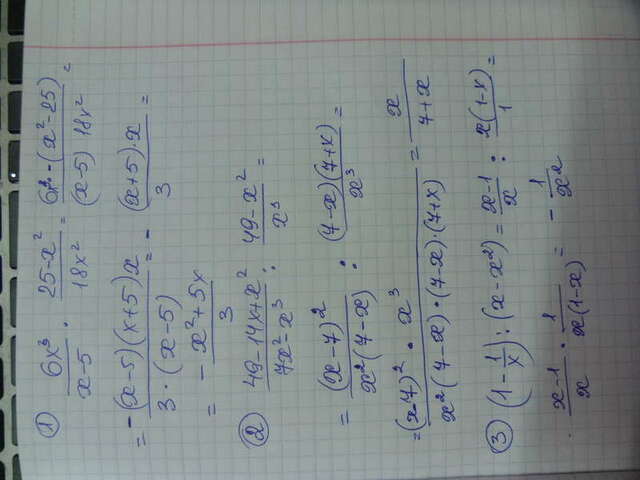 ① 6x³/(x-5) · (25-x²)/(18x²) = 6x³·-(x²-25)/((x-5) 18x²) =
= -(x-5)(x+5)x/(3·(x-5)) = - (x+5)·x/3 =
= - (x²+5x)/3
② (49-14x+x²)/(7x²-x³) : (49-x²)/x³ =
= (x-7)²/(x²(7-x)) : (7-x)(7+x)/x³ =
= (x-7)²·x³/(x²(7-x)·(7-x)·(7+x)) = x/(7+x)
③ (1-1/x) : (x-x²) = (x-1)/x : x(1-x)/1 =
· (x-1)/x · 1/(x(1-x)) = - 1/x²